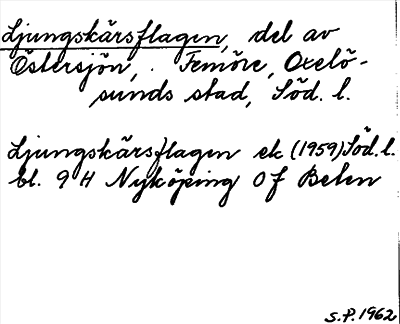 Ljungskärsflagen, del av
Östersjön, . Femöre, Oxelö-
sunds stad, Söd. l.
Ljungskärsflagen ek (1959) Söd. l.
bl. 9 H Nyköping Of Beten
S.P. 1962